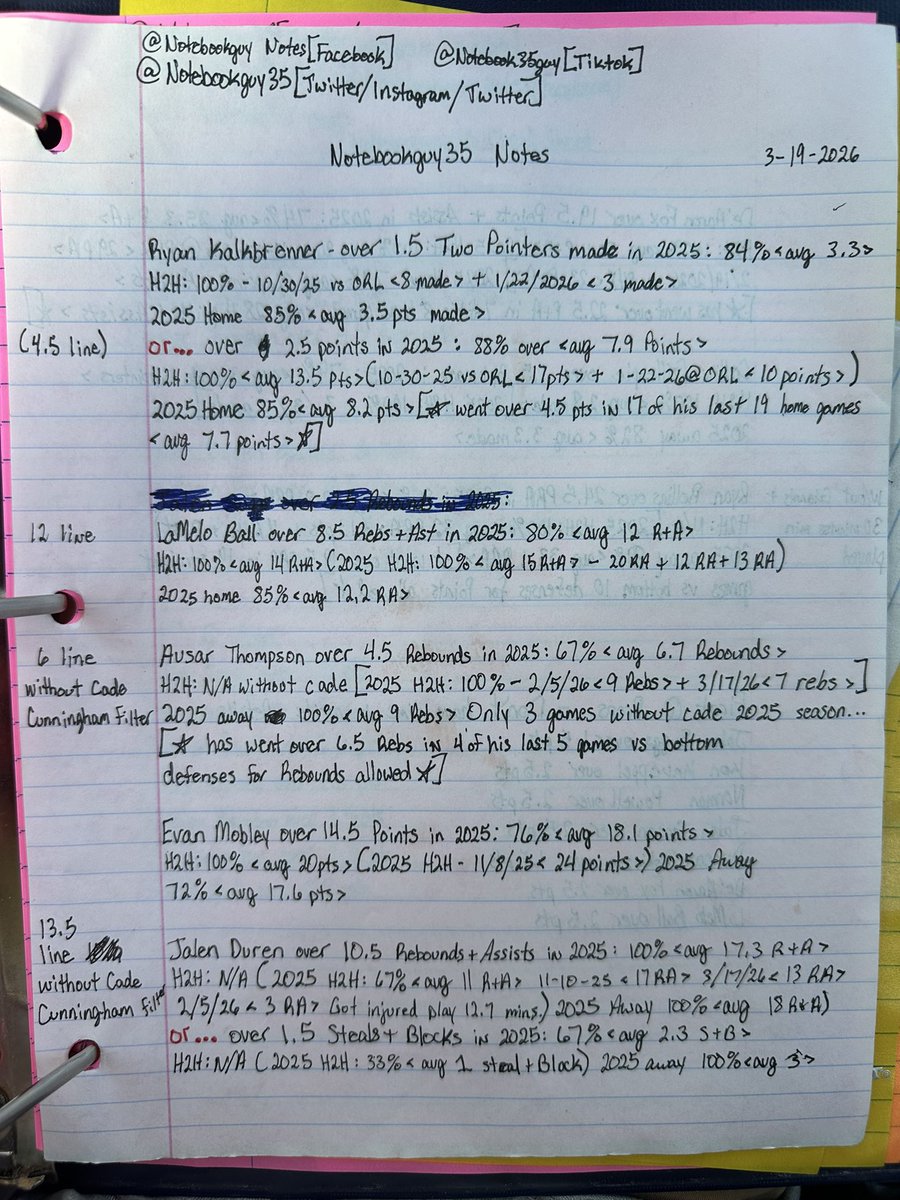 @Notebookguy Notes[Facebook] @Notebook35guy[Tiktok]
@Notebookguy35[Twitter/Instagram/Twitter]
Notebookguy35 Notes 3-19-2026
Ryan Kalkbrenner - over 1.5 Two Pointers made in 2025: 84% <avg 3.3>
H2H: 100% - 10/30/25 vs ORL <8 made> + 1/22/2026 <3 made>
2025 Home 85% <avg 3.5 pts made>
(4.5 line) or... over 2.5 points in 2025: 88% over <avg 7.9 Points>
H2H: 100% <avg 13.5 pts> (10-30-25 vs ORL <17pts> + 1-22-26@ORL <10 points>)
2025 Home 85% <avg 8.2 pts> [☆ went over 4.5 pts in 17 of his last 19 home games
<avg 7.7 points> ☆]
over Rebounds in 2025:
12 line LaMelo Ball over 8.5 Rebs+Ast in 2025: 80% <avg 12 R+A>
H2H: 100% <avg 14 R+A> (2025 H2H: 100% <avg 15 R+A> - 20RA + 12RA + 13RA)
2025 home 85% <avg 12.2 RA>
6 line Ausar Thompson over 4.5 Rebounds in 2025: 67% <avg 6.7 Rebounds>
without Cade H2H: N/A without cade [2025 H2H: 100% - 2/5/26 <9 Rebs> + 3/17/26 <7 rebs>]
Cunningham Filter 2025 away 100% <avg 9 Rebs> Only 3 games without cade 2025 season...
[☆ has went over 6.5 Rebs in 4 of his last 5 games vs bottom
defenses for Rebounds allowed ☆]
Evan Mobley over 14.5 Points in 2025: 76% <avg 18.1 points>
H2H: 100% <avg 20pts> (2025 H2H - 11/8/25 < 24 points>) 2025 Away
72% <avg 17.6 pts>
13.5
line Jalen Duren over 10.5 Rebounds+Assists in 2025: 100% <avg 17.3 R+A>
without Cade H2H: N/A (2025 H2H: 67% <avg 11 R+A> 11-10-25 <17RA> 3/17/26 <13 RA>
Cunningham Filter 2/5/26 <3 RA> Got injured play 12.7 mins.) 2025 Away 100% <avg 18 R+A)
or... over 1.5 Steals + Blocks in 2025: 67% <avg 2.3 S+B>
H2H: N/A (2025 H2H: 33% <avg 1 steal+Block) 2025 away 100% <avg 3>